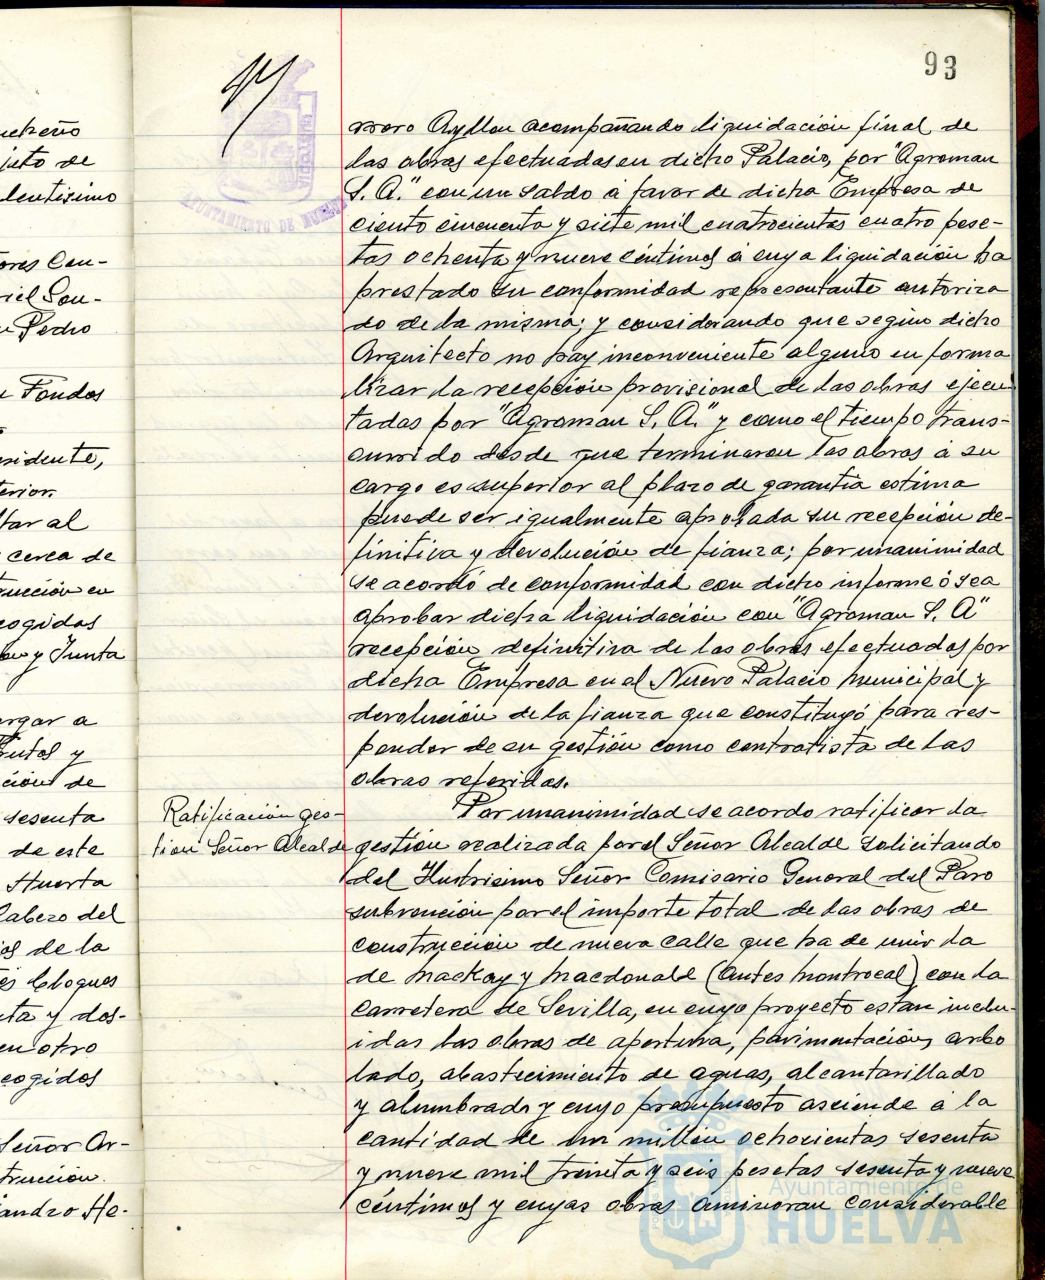 93
uckeño
juto de
lentisimo
ores Con-
riel Son-
Pedro
Fondos
sidente,
terior.
tar al
cerca de
trucción en
cogidos
y Junta
argar a
Frutos y
ción de
sesenta
de este
Huerta
Cabezo del
ios de la
bloques
ta y dos-
en otro
cogidos
Señor Ar-
trucción.
jandro He-
AYUNTAMIENTO DE HUELVA
moro Ayllon acompañando liquidación final de
las obras efectuadas en dicho Palacio, por "Agroman
S. A." con un saldo á favor de dicha Empresa de
ciento cincuenta y siete mil cuatrocientas cuatro pese-
tas ochenta y nueve céntimos á cuya liquidación ha
prestado su conformidad representante autoriza
do de la misma; y considerando que según dicho
Arquitecto no hay inconveniente alguno en forma
lizar la recepción provisional de las obras ejecu-
tadas por "Agroman S. A." y como el tiempo trans-
currido desde que terminaron las obras á su
cargo es superior al plazo de garantia estima
puede ser igualmente aprobada su recepción de-
finitiva y devolución de fianza; por unanimidad
se acordó de conformidad con dicho informe ó sea
aprobar dicha liquidación con "Agroman S. A"
recepción definitiva de las obras efectuadas por
dicha Empresa en el Nuevo Palacio Municipal y
devolución de la fianza que constituyó para res-
ponder de su gestión como contratista de las
obras referidas.
Ratificación ges-
tion Señor Alcalde
Por unanimidad se acordo ratificar la
gestión realizada por el Señor Alcalde solicitando
del Ilustrisimo Señor Comisario General del Paro
subvención por el importe total de las obras de
construcción de nueva calle que ha de unir la
de Mackay y Macdonald (antes Montrocal) con la
carretera de Sevilla, en cuyo proyecto estan inclu-
idas las obras de apertura, pavimentación, arbo
lado, abastecimiento de aguas, alcantarillado
y alumbrado y cuyo presupuesto asciende á la
cantidad de un millón ochocientas sesenta
y nueve mil treinta y seis pesetas sesenta y nueve
céntimos y cuyas obras aminoran considerable
Ayuntamiento de
HUELVA